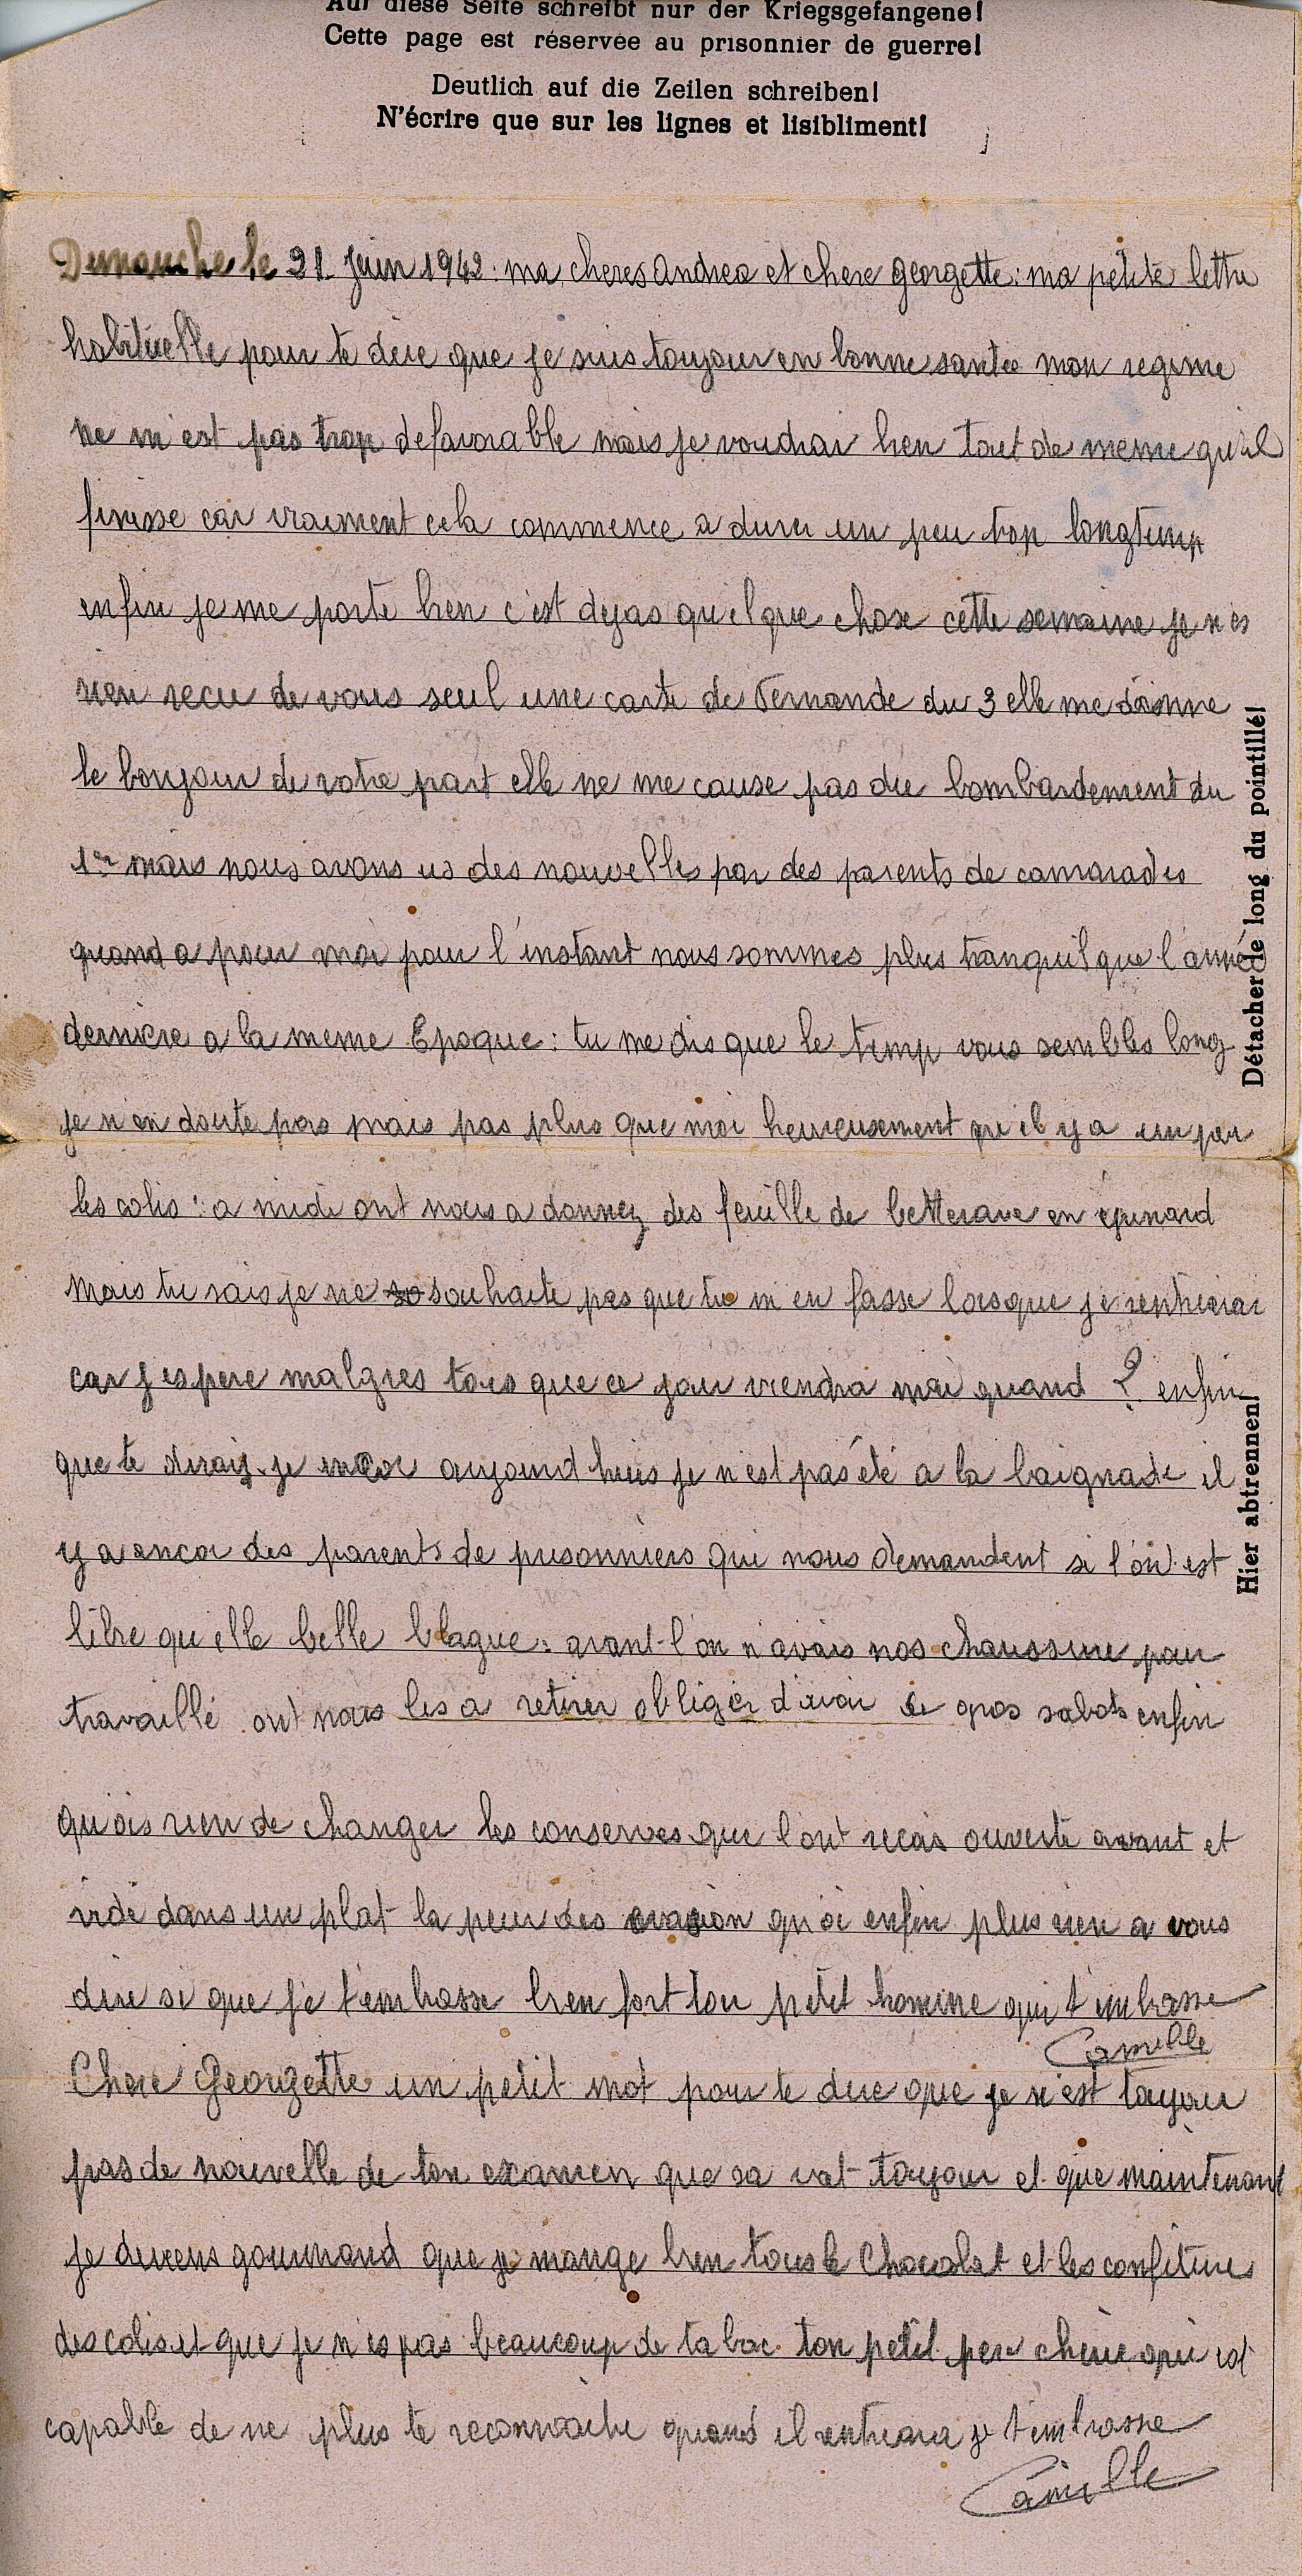 Auf diese Seite schreibt nur der Kriegsgefangene!
Cette page est réservée au prisonnier de guerre!
Deutlich auf die Zeilen schreiben!
N'écrire que sur les lignes et lisibliment!
Dimanche le 21 Juin 1942: ma cheres Andrea et chere georgette: ma petite lettre
habituelle pour te dire que je suis toujour en bonne santée mon regime
ne m'est pas trop defavorable mais je voudrai bien tout de meme qu'il
finisse car vraiment cela commence a durer un peu trop longtemp
enfin je me porte bien c'est dejas quelque chose cette semaine je n es
rien recu de vous seul une carte de Fernande du 3 elle me donne
le bonjour de votre part elle ne me cause pas du bombardement du
1er mais nous avons us des nouvelles par des parents de camarades
quand a pour moi pour l'instant nous sommes plus tranquil que l'année
derniere a la meme Epoque: tu me dis que le temp vous sembles long
je n en doute pas mais pas plus que moi heureusement qu il y a un peu
les colis: a midi ont nous a donnez des feuille de betterave en épinard
mais tu sais je ne so souhaite pas que tu m en fasse lorsque je rentrerai
car j espere malgres tous que ce jour viendra mai quand ? enfin
que te dirais-je encor aujourd huis je n'est pas été a la baignade il
y a encor des parents de prisonniers qui nous demandent si l'ont est
libre qu elle belle blague: avant l'on n avais nos chaussure pour
travaillé ont nous les a retirer obliger d'avoir de gros sabots enfin
quois rien de changer les conserves que l'ont recois ouverte avant et
vidé dans un plat la peur des evasion quoi enfin plus rien a vous
dire si que je t'embrasse bien fort ton petit homme qui t'embrasse
Camille
Chere Georgette un petit mot pour te dire que je n'est toujour
pas de nouvelle de ton examen que sa vat toujour et que maintenant
je deviens gourmand que je mange bien tous le chocolat et les confitures
des colis et que je n es pas beaucoup de tabac ton petit pere cherie qui est
capable de ne plus te reconnaitre quand il rentrera je t'embrasse
Camille
Détacher le long du pointillé!
Hier abtrennen!